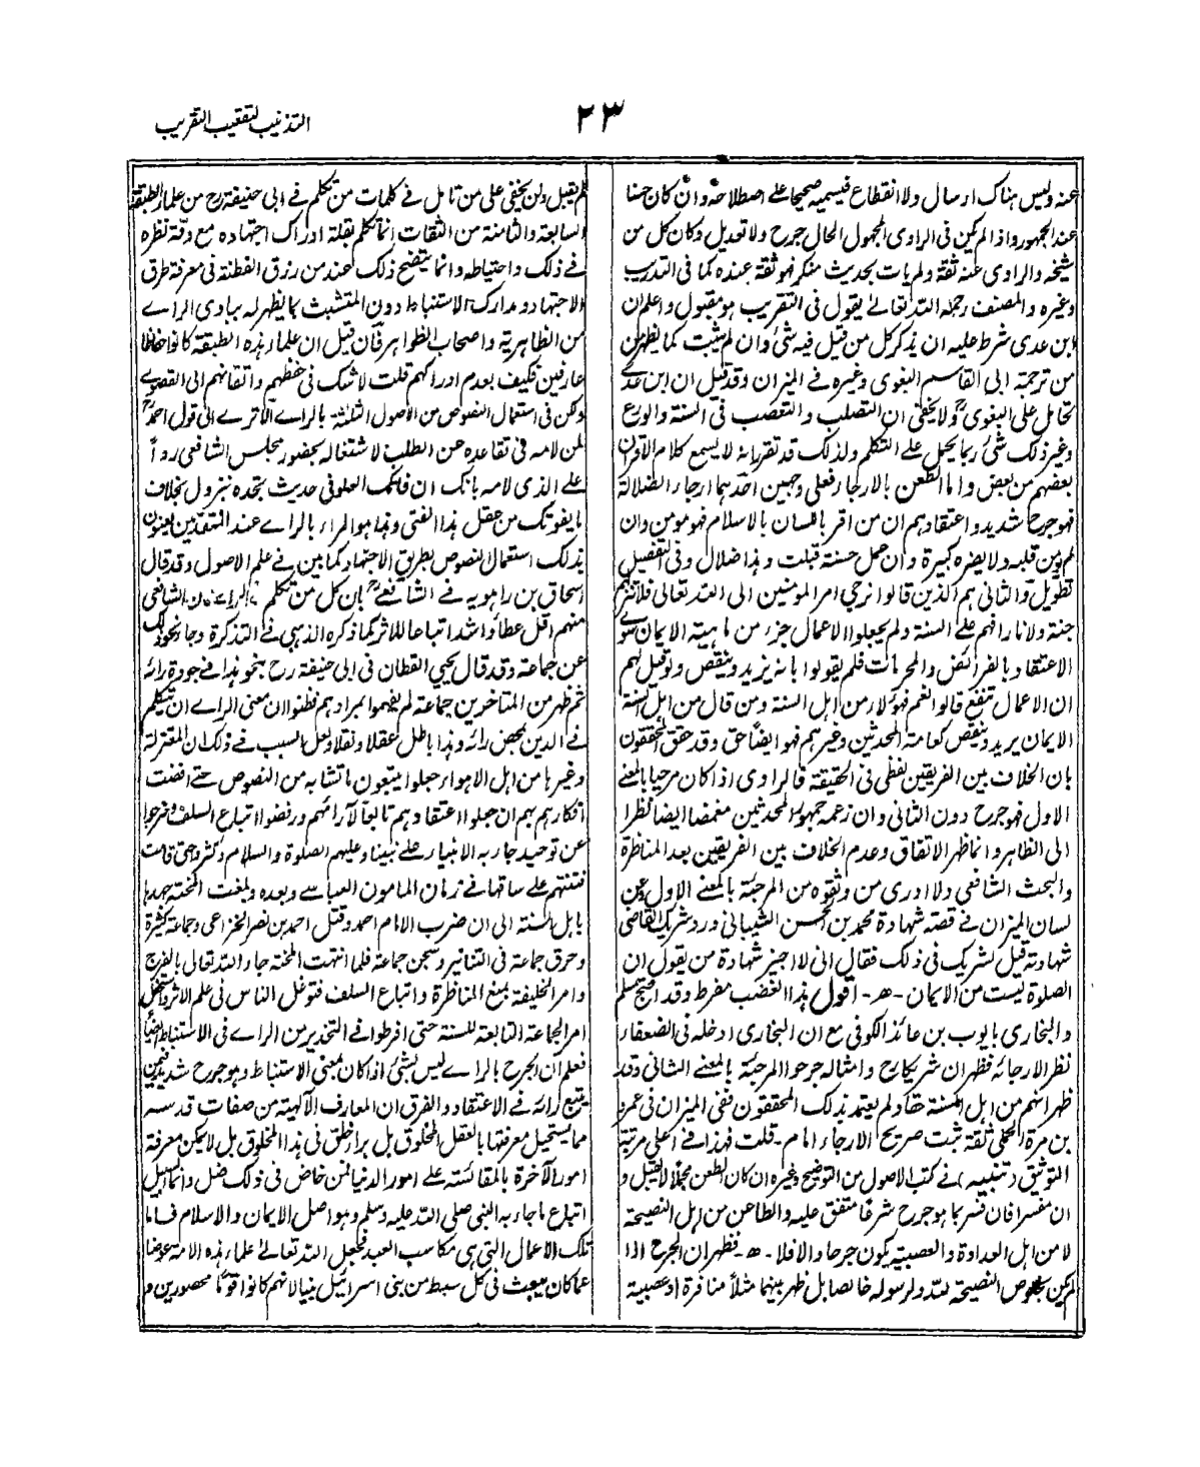 ٢٣
التذنيب لتعقيب التقريب
عنه وليس هناك ارسال ولا انقطاع فيسميه صحيحا على اصطلاحه وان كان حسنا
عند الجمهور واذا لم يكن فى الراوى المجهول الحال جرح ولا تعديل وكان كل من
شيخه والراوى عنه ثقة ولم يات بحديث منكر فهو ثقة عنده كما فى التدريب
وغيره والمصنف رحمه الله تعالى يقول فى التقريب هو مقبول واعلم ان
ابن عدى شرط عليه ان يذكر كل من قيل فيه شئ وان لم يثبت كما يظهر من
من ترجمة ابى القاسم البغوى وغيره فى الميزان وقد قيل ان ابن عدى
تحامل على البغوى ولا يخفى ان التصلب والتعصب فى السنة والورع
وغير ذلك شئ ربما يحمل على التكلم ولذلك قد تقرر انه لا يسمع كلام الاقران
بعضهم من بعض واما الطعن بالارجاء فعلى وجهين احدهما ارجاء الضلالة
فهو جرح شديد واعتقادهم ان من اقر باللسان بالاسلام فهو مومن وان
لم يومن قلبه ولا يضره كبيرة وان عمل حسنة قبلت وهذا ضلال وفى التفصيل
تطويل والثانى هم الذين قالوا نرجى امر المومنين الى الله تعالى فلا ننزلهم
جنة ولا نارا فهم على السنة ولم يجعلوا الاعمال جزء من ماهية الايمان سوى
الاعتقاد بالفرائض والمحرمات فلم يقولوا بانه يزيد وينقص ولو قيل لهم
ان الاعمال تنفع قالوا نعم فهولاء من اهل السنة ومن قال من اهل السنة
الايمان يزيد وينقص كعامة المحدثين وغيرهم فهو ايضا حق وقد حقق المحققون
بان الخلاف بين الفريقين لفظى فى الحقيقة فالراوى اذا كان مرجيا بالمعنى
الاول فهو جرح دون الثانى وان زعمه جمهور المحدثين مغمضا ايضا نظرا
الى الظاهر وانما ظهر الاتفاق وعدم الخلاف بين الفريقين بعد المناظرة
والبحث الشافعى ولا ادرى من وثقوه من المرجئة بالمعنى الاول وعن
لسان الميزان فى قصة شهادة محمد بن الحسن الشيبانى ورد شريك القاضى
شهادته قيل لشريك فى ذلك فقال انى لا اجيز شهادة من يقول ان
الصلوة ليست من الايمان -ه- اقول هذا الغضب مفرط وقد احتج مسلم
والبخارى بايوب بن عائذ الكوفى مع ان البخارى ادخله فى الضعفاء
نظرا لارجائه فظهر ان شريكا رح وامثاله جرحوا المرجئة بالمعنى الثانى وقد
ظهر انهم من اهل السنة حقا ولم يعتمد بذلك المحققون ففى الميزان فى عمرو
بن مرة الجملى ثقة ثبت صريح الارجاء امام - قلت فهذا فى اعلى مرتبة
التوثيق (تنبيه) فى كتب الاصول من التوضيح وغيره ان كان الطعن مجملا لا يقبل و
ان مفسرا فان فسر بما هو جرح شرعا متفق عليه والطاعن من اهل النصيحة
لا من اهل العداوة والعصبية يكون جرحا والا فلا - ه- فظهر ان الجرح اذا
لم يكن بخلوص النصيحة لله ولرسوله خالصا بل ظهر بينهما مثلا منافرة او عصبية
لم يقبل ولن يخفى على من تامل فى كلمات من تكلم فى ابى حنيفة رح من علماء الطبقة
السابعة والثامنة من الثقات انما تكلم لقلة ادراك اجتهاده مع دقة نظره
فى ذلك واحتياطه وانما يتضح ذلك عند من رزق الفطنة فى معرفة طرق
الاجتهاد ومدارك الاستنباط دون المتشبث كما يظهر له ببادى الراى
من الظاهرية واصحاب الظواهر فان قيل ان علماء هذه الطبقة كانوا حفاظا
عارفين فكيف بعدم ادراكهم قلت لا شك فى حفظهم واتقانهم الى القصوى
ولكن فى استعمال النصوص من الاصول الثلاثة بالراى الا ترى الى قول احمد
لمن لامه فى تقاعده عن الطلب لاشتغاله بحضور مجلس الشافعى ردا
على الذى لامه بانك ان فاتك العلو فى حديث تجده بنزول بخلاف
ما يفوتك من عقل هذا الفتى وهذا هو المراد بالراى عند المتقدمين يعنون
بذلك استعمال النصوص بطريق الاجتهاد كما بين فى علم الاصول وقد قال
اسحاق بن راهويه فى الشافعى بان كل من تكلم بالراى فان الشافعى
منهم اقل خطأ واشد اتباعا للاثر كما ذكره الذهبى فى التذكرة وجاء نحو ذلك
عن جماعة وقد قال يحيى القطان فى ابى حنيفة رح بنحو هذا فى جودة رائه
ثم ظهر من المتاخرين جماعة لم يفهموا مرادهم فظنوا ان معنى الراى ان يتكلم
فى الدين بمحض رائه وهذا باطل عقلا ونقلا ولعل السبب فى ذلك ان المعتزلة
وغيرها من اهل الاهواء جعلوا يتبعون ما تشابه من النصوص حتى افضت
افكارهم بهم ان جعلوا اعتقادهم تابعا لآرائهم ورفضوا اتباع السلف وخرجوا
عن توحيد جاء به الانبياء على نبينا وعليهم الصلوة والسلام وكثروا حتى قامت
فتنتهم على ساقها فى زمان المامون العباسى وبعده وبلغت المحنة جهدها
باهل السنة الى ان ضرب الامام احمد وقتل احمد بن نصر الخزاعى وجماعة كثيرة
وحرق جماعة فى التنانير وسجن جماعة فلما انتهت المحنة جاء الله تعالى بالفرج
وامر الخليفة بمنع المناظرة واتباع السلف فتوغل الناس فى علم الاثر واستفحل
امر الجماعة التابعة للسنة حتى افرطوا فى التحذير من الراى فى الاستنباط ايضا
فعلم ان الجرح بالراى ليس بشئ اذا كان بمعنى الاستنباط وهو جرح شديد فيمن
يتبع رائه فى الاعتقاد والفرق ان المعارف الآلهية من صفات قدسه
مما يستحيل معرفتها بالعقل المخلوق بل براى خلق فى هذا المخلوق بل لا يمكن معرفة
امور الآخرة بالمقائسة على امور الدنيا فمن خاض فى ذلك ضل وانما السبيل
اتباع ما جاء به النبى صلى الله عليه وسلم وهو اصل الايمان والاسلام فاما
تلك الاعمال التى هى مكاسب العبد فجعل الله تعالى علماء هذه الامة عوضا
عما كان يبعث فى كل سبط من بنى اسرائيل نبيا لانهم كانوا قوما محصورين و